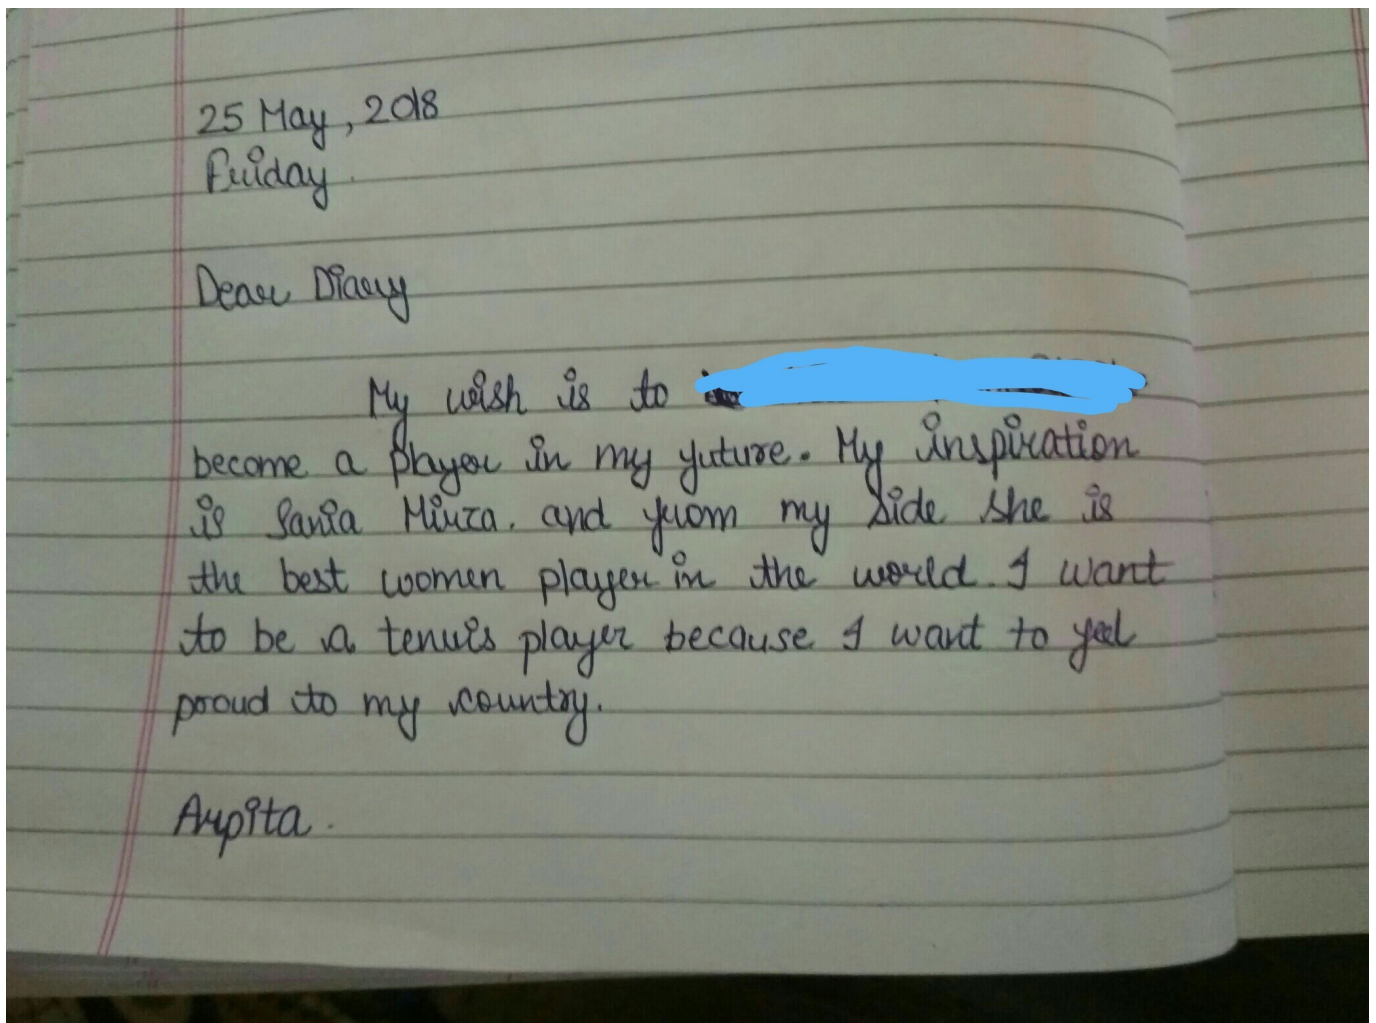 25 May, 2018
Friday.
Dear Diary
My wish is to
become a player in my future. My inspiration
is Sania Mirza. and from my side she is
the best women player in the world. I want
to be a tennis player because I want to feel
proud to my country.
Arpita.